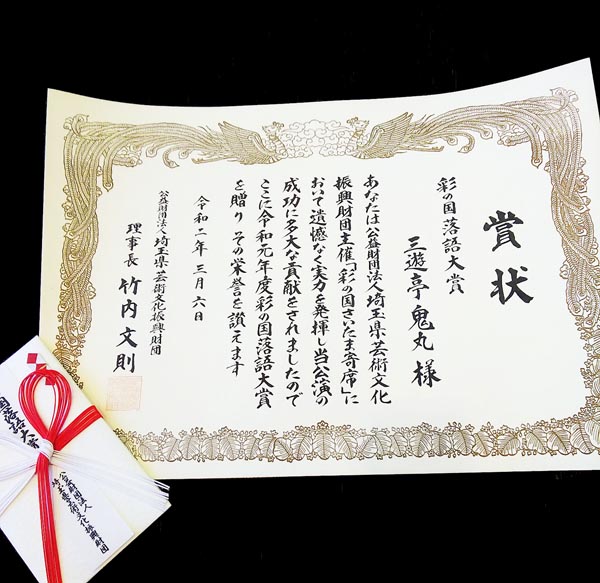 賞状
彩の国落語大賞
三遊亭鬼丸様
あなたは公益財団法人埼玉県芸術文化
振興財団主催「彩の国さいたま寄席」に
おいて遺憾なく実力を発揮し当公演の
成功に多大な貢献をされましたので
ここに令和元年度彩の国落語大賞
を贈りその栄誉を讃えます
令和二年三月六日
公益財団法人埼玉県芸術文化振興財団
理事長竹内文則
国落語大賞
公益財団法人
埼玉県芸術文化振興財団